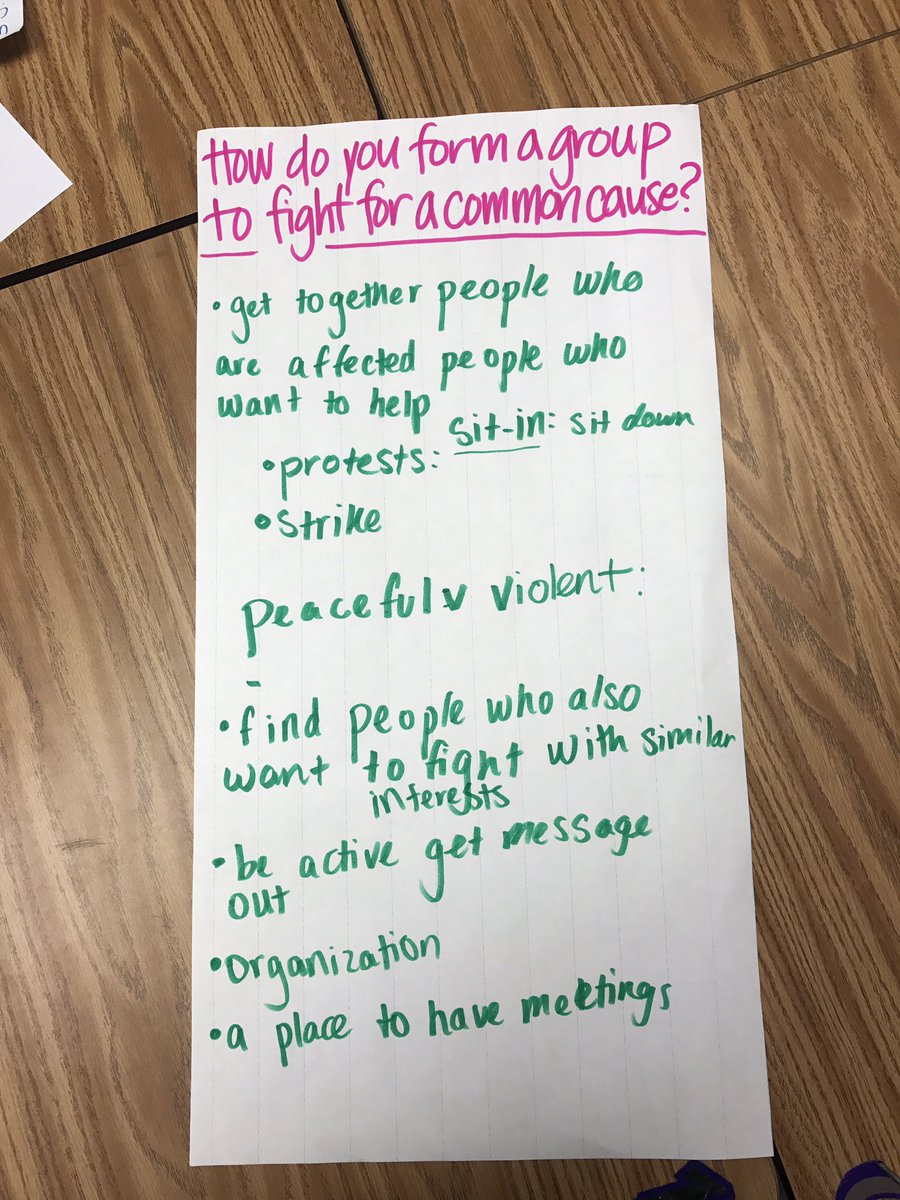 How do you form a group
to fight for a common cause?
• get together people who
are affected people who
want to help
sit-in: sit down
• protests:
• strike
peaceful v violent:
-
• find people who also
want to fight with similar
interests
• be active get message
out
• organization
• a place to have meetings